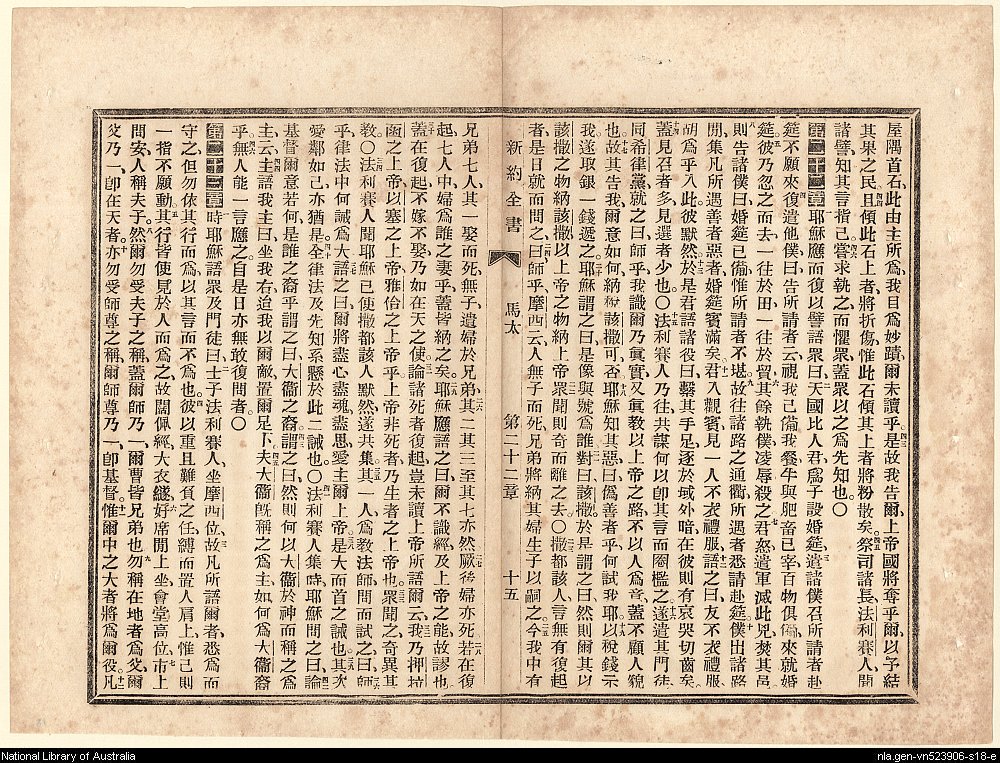 屋隅首石、此由主所爲、我目爲妙蹟、爾未讀乎、是故我告爾、上帝國將奪乎爾、以予結
其果之民、且傾此石上者將折傷、惟此石傾其上者將粉散矣、祭司諸長、法利賽人、聞
諸譬、知其言指己、嘗求執之、而懼眾、蓋眾以之爲先知也。〇
第二十二章 耶穌應而復以譬語眾曰、天國比人君爲子設婚筵、遣諸僕召所請者赴
筵、不願來、復遣他僕曰、告所請者云、視我已備我餐、牛與肥畜已宰、百物俱備、來就婚
筵、彼乃忽之而去、一往於田、一往於貿、其餘執僕凌辱殺之、君怒、遣軍滅此兇、焚其邑、
則告諸僕曰、婚筵已備、惟所請者不堪、故往諸路之通衢、所遇者悉請赴筵、僕出諸路
間、集凡所遇善者惡者、婚筵賓滿矣、君入觀賓、見一人不衣禮服、語之曰、友、不衣禮服、
胡爲乎入此、彼默然、於是君語諸役曰、繫其手足、逐於域外暗、在彼則有哀哭切齒矣、
蓋見召者多、見選者少也。〇法利賽人乃往共謀、何以卽其言而圈檻之、遂遣其門徒、
同希律黨就之曰、師乎、我識爾乃眞實、又眞教以上帝之路、不以人爲意、蓋不顧人貌
也、故其告我、爾意如何、納稅該撒可否、耶穌知其惡曰、僞善者乎、何試我耶、以稅錢示
我、遂取銀一錢遞之、耶穌謂之曰、是像與號爲誰、對曰、該撒、於是謂之曰、然則爾其以
該撒之物納該撒、以上帝之物納上帝、眾聞則奇而離之去。〇撒都該人言無有復起
者、是日就而問之曰、師乎、摩西云、人無子而死、兄弟將納其婦、生子以嗣之、今我中有
新約全書 馬太 第二十二章 十五
兄弟七人、其一娶而死、無子、遺婦於兄弟、其二其三、至其七亦然、厥後婦亦死、若在復
起、七人中婦爲誰之妻乎、蓋皆納之矣、耶穌應語之曰、爾不識經、及上帝之能、故謬也、
蓋在復起、不嫁不娶、乃如在天之使、論諸死者復起、豈未讀上帝所語爾云、我乃押拉
函之上帝、以塞之上帝、雅佮之上帝乎、上帝非死者、乃生者之上帝也、眾聞之、奇異其
教。〇法利賽人聞耶穌已使撒都該人默然、遂共集、其一人爲教法師、問而試之曰、師
乎、律法中何誡爲大、語之曰、爾將盡心、盡魂、盡思、愛主爾上帝、是大而首之誡也、其次
愛鄰如己、亦猶是、全律法及先知系懸於此二誡也。〇法利賽人集時、耶穌問之曰、論
基督爾意若何、是誰之裔乎、謂之曰、大衞之裔、謂之曰、然則何以大衞於神而稱之爲
主、云主語我主曰、坐我右、迨我以爾敵置爾足下、夫大衞旣稱之爲主、如何爲大衞裔
乎、無人能一言應之、自是日亦無敢復問者。〇
第二十三章 時耶穌語眾及門徒曰、士子法利賽人、坐摩西位、故凡所語爾者、悉爲而
守之、但勿依其行而爲、以其言而不爲也、彼以重且難負之任、縛而置人肩上、惟己則
一指不願動、其行皆使見於人而爲之、故闊佩經、大衣繸、好席間上坐、會堂高位、市上
問安、人稱夫子、然爾勿受夫子之稱、蓋爾師乃一、爾曹皆兄弟也、勿稱在地者爲父、爾
父乃一、卽在天者、亦勿受師尊之稱、爾師尊乃一、卽基督、惟爾中之大者將爲爾役、凡
National Library of Australia
nla.gen-vn523906-s18-e